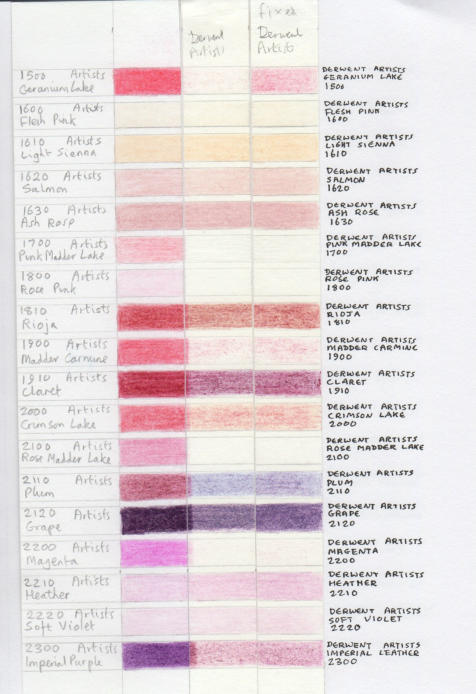 Derwent
Artists
fixed
Derwent
Artists
1500 Artists
Geranium Lake
DERWENT ARTISTS
GERANIUM LAKE
1500
1600 Artists
Flesh Pink
DERWENT ARTISTS
FLESH PINK
1600
1610 Artists
Light Sienna
DERWENT ARTISTS
LIGHT SIENNA
1610
1620 Artists
Salmon
DERWENT ARTISTS
SALMON
1620
1630 Artists
Ash Rose
DERWENT ARTISTS
ASH ROSE
1630
1700 Artists
Pink Madder Lake
DERWENT ARTISTS
PINK MADDER LAKE
1700
1800 Artists
Rose Pink
DERWENT ARTISTS
ROSE PINK
1800
1810 Artists
Rioja
DERWENT ARTISTS
RIOJA
1810
1900 Artists
Madder Carmine
DERWENT ARTISTS
MADDER CARMINE
1900
1910 Artists
Claret
DERWENT ARTISTS
CLARET
1910
2000 Artists
Crimson Lake
DERWENT ARTISTS
CRIMSON LAKE
2000
2100 Artists
Rose Madder Lake
DERWENT ARTISTS
ROSE MADDER LAKE
2100
2110 Artists
Plum
DERWENT ARTISTS
PLUM
2110
2120 Artists
Grape
DERWENT ARTISTS
GRAPE
2120
2200 Artists
Magenta
DERWENT ARTISTS
MAGENTA
2200
2210 Artists
Heather
DERWENT ARTISTS
HEATHER
2210
2220 Artists
Soft Violet
DERWENT ARTISTS
SOFT VIOLET
2220
2300 Artists
Imperial Purple
DERWENT ARTISTS
IMPERIAL LEATHER
2300